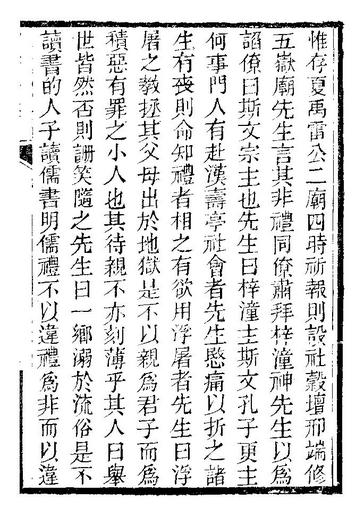 惟存夏禹雷公二廟四時祈報則設社穀壇邢端修
五嶽廟先生言其非禮同僚肅拜梓潼神先生以爲
諂僚曰斯文宗主也先生曰梓潼主斯文孔子更主
何事門人有赴漢壽亭社會者先生愍痛以折之諸
生有丧則命知禮者相之有欲用浮屠者先生曰浮
屠之教拯其父母出於地獄是不以親爲君子而爲
積惡有罪之小人也其待親不亦刻薄乎其人曰舉
世皆然否則訕笑隨之先生曰一鄉溺於流俗是不
讀書的人子讀儒書明儒禮不以違禮爲非而以違